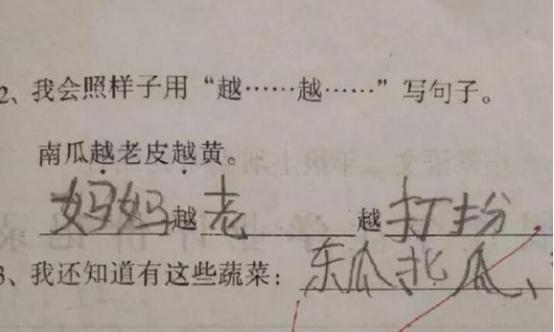 2、我会照样子用“越……越……”写句子。
南瓜越老皮越黄。
妈妈越老越打扮
3、我还知道有这些蔬菜：东瓜、北瓜、